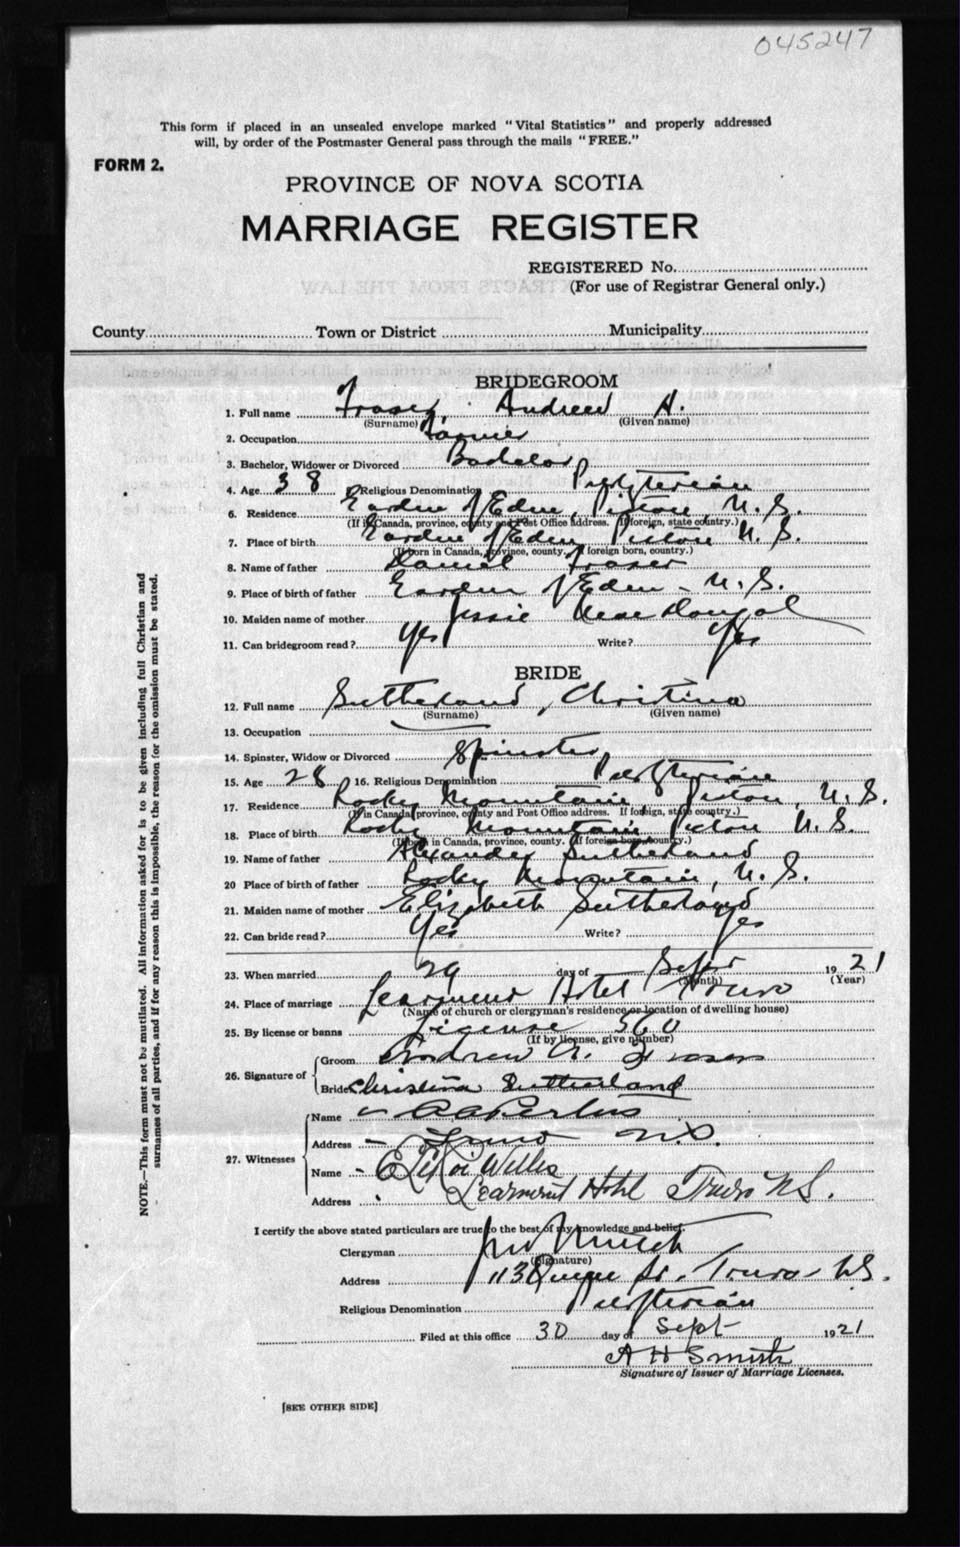 045247
This form if placed in an unsealed envelope marked "Vital Statistics" and properly addressed
will, by order of the Postmaster General pass through the mails "FREE."
FORM 2.
PROVINCE OF NOVA SCOTIA
MARRIAGE REGISTER
REGISTERED No.
(For use of Registrar General only.)
County Town or District Municipality
BRIDEGROOM
1. Full name Fraser, Andrew A.
(Surname) (Given name)
2. Occupation Farmer
3. Bachelor, Widower or Divorced Bachelor
4. Age 38 Religious Denomination Presbyterian
6. Residence Garden of Eden, Pictou, N.S.
(If in Canada, province, county and Post Office address. If foreign, state country.)
7. Place of birth Garden of Eden Pictou N.S.
(If born in Canada, province, county. If foreign born, country.)
8. Name of father Daniel Fraser
9. Place of birth of father Garden of Eden - N.S.
10. Maiden name of mother Jessie MacDougal
11. Can bridegroom read? Yes Write? Yes
BRIDE
12. Full name Sutherland, Christina
(Surname) (Given name)
13. Occupation
14. Spinster, Widow or Divorced Spinster
15. Age 28 16. Religious Denomination Presbyterian
17. Residence Rocky Mountain Pictou, N.S.
(If in Canada, province, county and Post Office address. If foreign, state country.)
18. Place of birth Rocky Mountain Pictou N.S.
(If born in Canada, province, county. If foreign born, country.)
19. Name of father Alexander Sutherland
20 Place of birth of father Rocky Mountain, N.S.
21. Maiden name of mother Elizabeth Sutherland
22. Can bride read? Yes Write? Yes
23. When married 29 day of Sept 1921
(Month) (Year)
24. Place of marriage Learment Hotel Truro
(Name of church or clergyman's residence or location of dwelling house)
25. By license or banns License 560
(If by license, give number)
26. Signature of
Groom Andrew A. Fraser
Bride Christina Sutherland
27. Witnesses
Name
Address - Truro N.S.
Name - Willis
Address Learment Hotel Truro N.S.
I certify the above stated particulars are true to the best of my knowledge and belief.
Clergyman
(Signature)
Address 113 Queen St. Truro N.S.
Religious Denomination Presbyterian
Filed at this office 30 day of Sept 1921
A H Smith
Signature of Issuer of Marriage Licenses.
[SEE OTHER SIDE]
NOTE.—This form must not be mutilated. All information asked for is to be given including full Christian and
surnames of all parties, and if for any reason this is impossible, the reason for the omission must be stated.